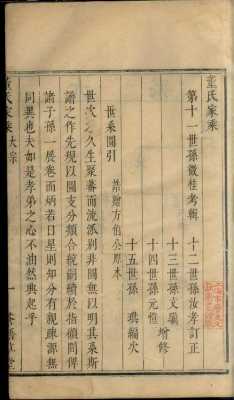 董氏家乘
第十一世孫 徵桂 考輯 十二世孫 汝孝 訂正
十三世孫 文驥
十四世孫 元愷 增修
十五世孫 琪 編次
世系圖引 禁贈方伯公原本
世次之久生聚蕃而流派别非圖無以明其系斯
譜之作先現以圖支分類合統嗣續於指顧間俾
諸子孫一展卷而炳若日星則知分有親疎源無
同異也夫如是孝弟之心不油然興起乎
董氏家乘 大宗 一